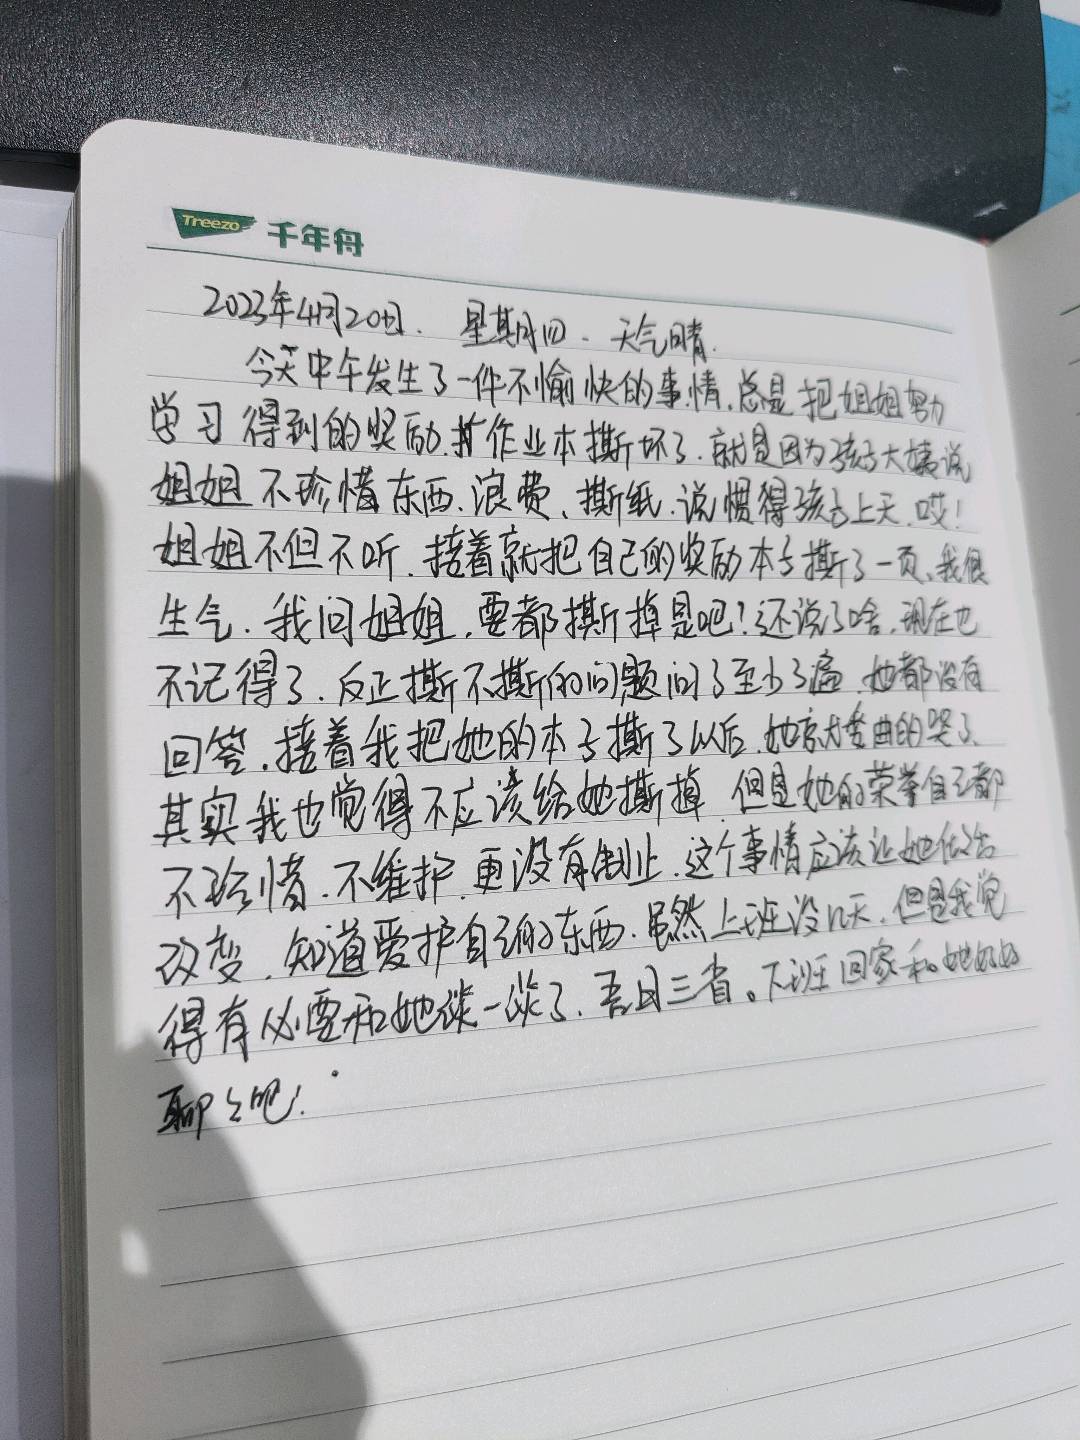 Treezo 千年舟
2023年4月20日. 星期四. 天气晴.
今天中午发生了一件不愉快的事情,总是把姐姐努力
学习得到的奖励,作业本撕坏了.就是因为孩子大姨说
姐姐不珍惜东西、浪费、撕纸.说惯得孩子上天.哎!
姐姐不但不听.接着就把自己的奖励本子撕了一页、我很
生气.我问姐姐,要都撕掉是吧!还说了啥,现在也
不记得了.反正撕不撕的问题问了至少3遍.她都没有
回答.接着我把她的本子撕了以后.她就委曲的哭了.
其实我也觉得不应该给她撕掉.但是她的荣誉自己都
不珍惜.不维护.更没有制止.这个事情应该让她
改变.知道爱护自己的东西.虽然上班没几天.但是我觉
得有必要和她谈一谈了.吾日三省。下班回家和她好好
聊聊吧!